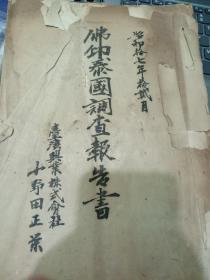 昭和拾七年拾貳月
佛印泰國調查報告書
臺灣興業株式會社
小野田正業